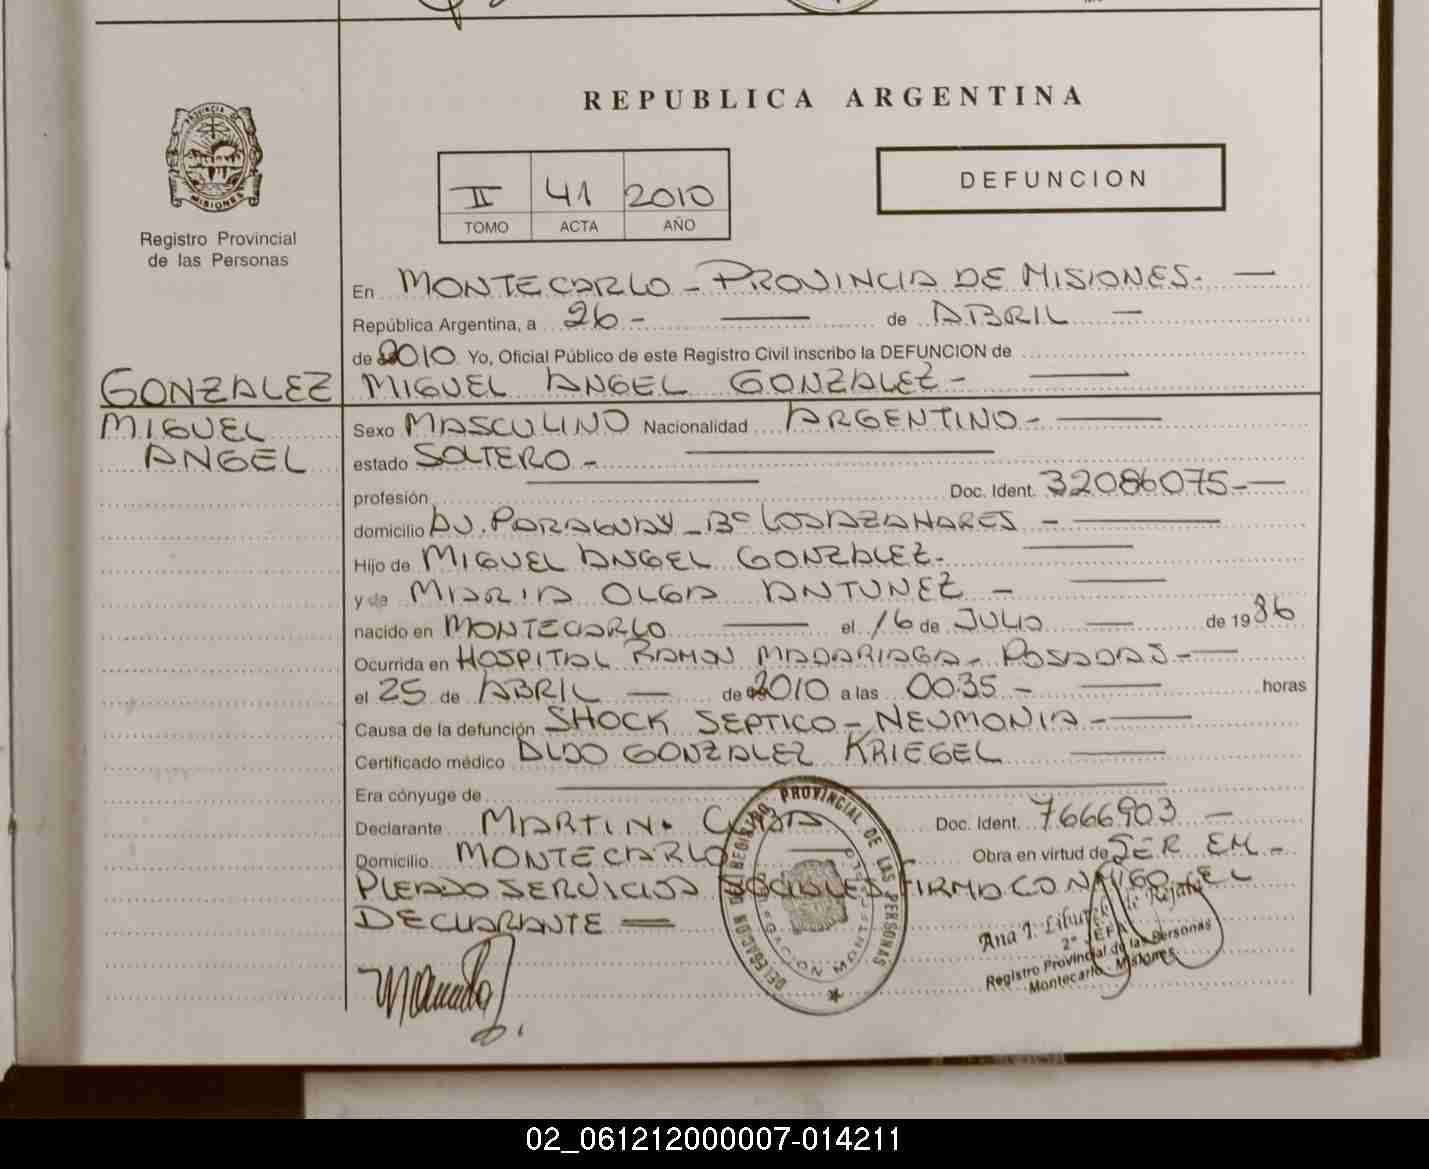 PROVINCIA DE
MISIONES
Registro Provincial
de las Personas
REPUBLICA ARGENTINA
II 41 2010
TOMO ACTA AÑO
DEFUNCION
En MONTECARLO - PROVINCIA DE MISIONES. —
República Argentina, a 26 - — de ABRIL —
de 2010 Yo, Oficial Público de este Registro Civil inscribo la DEFUNCION de
GONZALEZ MIGUEL ANGEL GONZALEZ - —
MIGUEL Sexo MASCULINO Nacionalidad ARGENTINO - —
ANGEL estado SOLTERO - —
profesión — Doc. Ident. 32086075 - —
domicilio AV. PARAGUAY - Bº LOS AZAHARES - —
Hijo de MIGUEL ANGEL GONZALEZ - —
y de MARIA OLGA ANTUNEZ - —
nacido en MONTECARLO — el 16 de JULIO — de 1986
Ocurrida en HOSPITAL RAMON MADARIAGA - POSADAS - —
el 25 de ABRIL — de 2010 a las 0035 - — horas
Causa de la defunción SHOCK SEPTICO - NEUMONIA - —
Certificado médico ALDO GONZALEZ KRIEGEL —
Era cónyuge de —
Declarante MARTIN Doc. Ident. 7666903 —
Domicilio MONTECARLO — Obra en virtud de SER EM -
PLEADO SERVICIOS SOCIALES FIRMA CONMIGO EL
DECLARANTE =
DELEGACION DEL REGISTRO PROVINCIAL DE LAS PERSONAS
DELEGACION MONTECARLO
Ana I. de Rojas
2º JEFA
Registro Provincial de las Personas
Montecarlo - Misiones
02_061212000007-014211